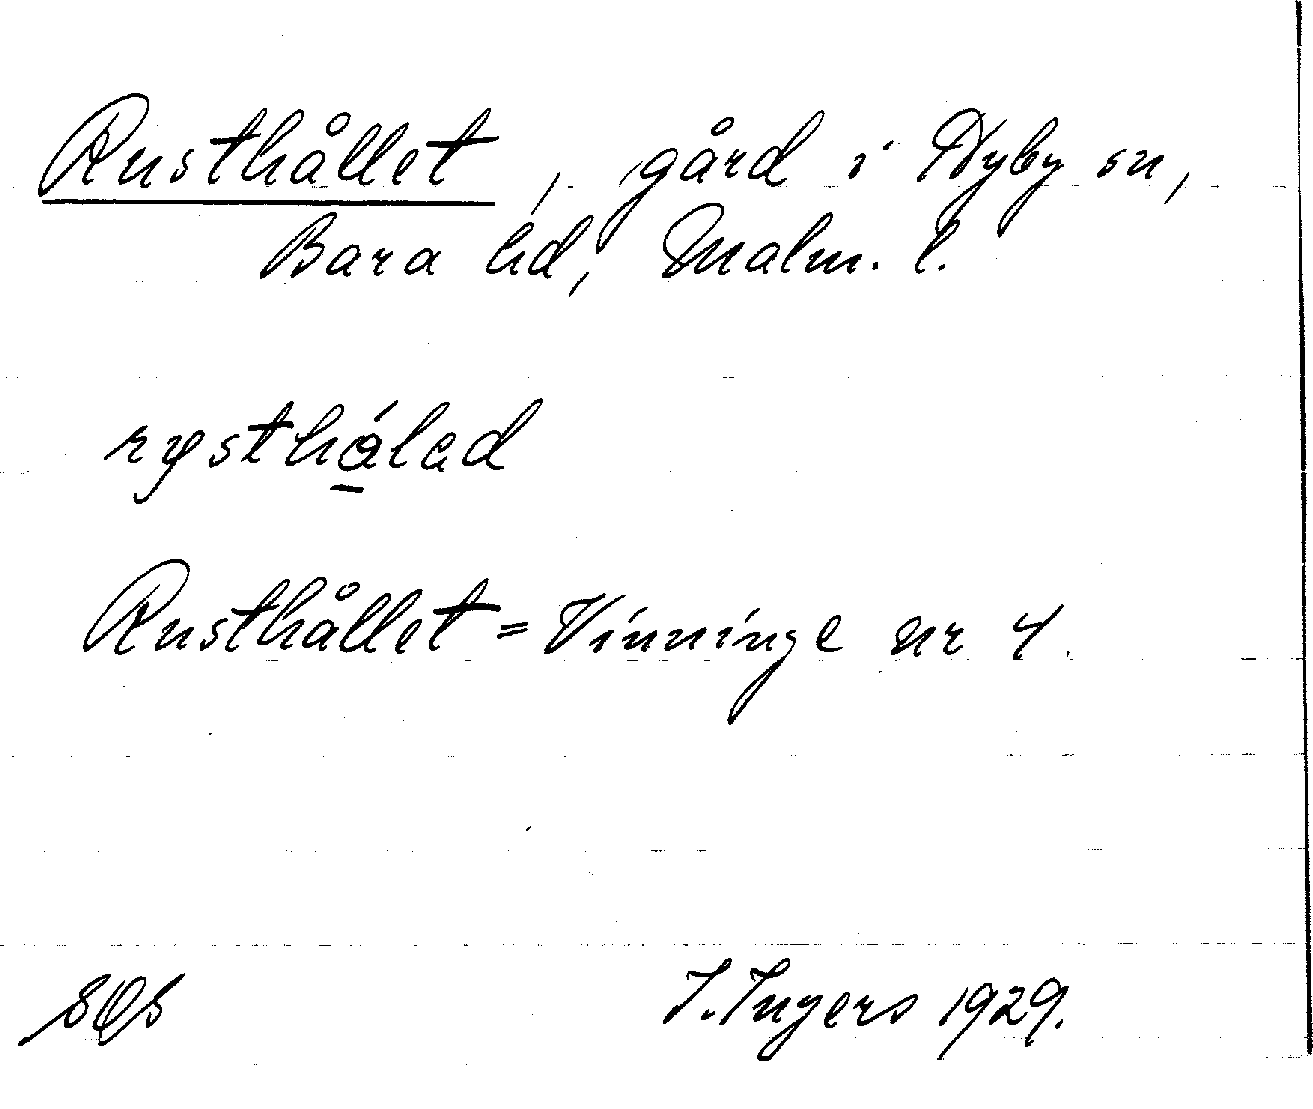 Rusthållet, gård i Hyby sn,
Bara hd, Malm. l.
rysthálad
Rusthållet = Vinninge nr 4.
I. Ingers 1929.